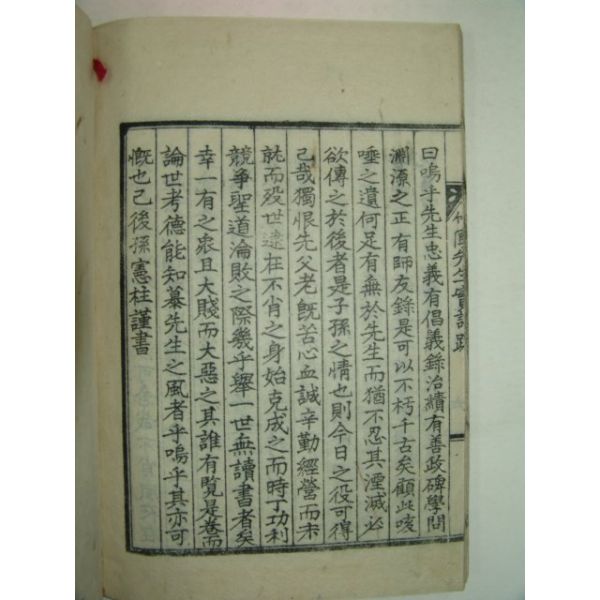 曰嗚乎先生忠義有倡義錄治績有善政碑學問
淵源之正有師友錄是可以不朽千古矣顧此咳
唾之遺何足有無於先生而猶不忍其湮滅必
欲傳之於後者是子孫之情也則今日之役可得
已哉獨恨先父老旣苦心血誠辛勤經營而未
就而歿世遠在不肖之身始克成之而時丁功利
競爭聖道淪敗之際幾乎擧一世無讀書者矣
幸一有之衆且大賤而大惡之其誰有覧是卷而
論世考德能知慕先生之風者乎嗚乎其亦可
慨也己後孫憲柱謹書
鳳先生實記跋